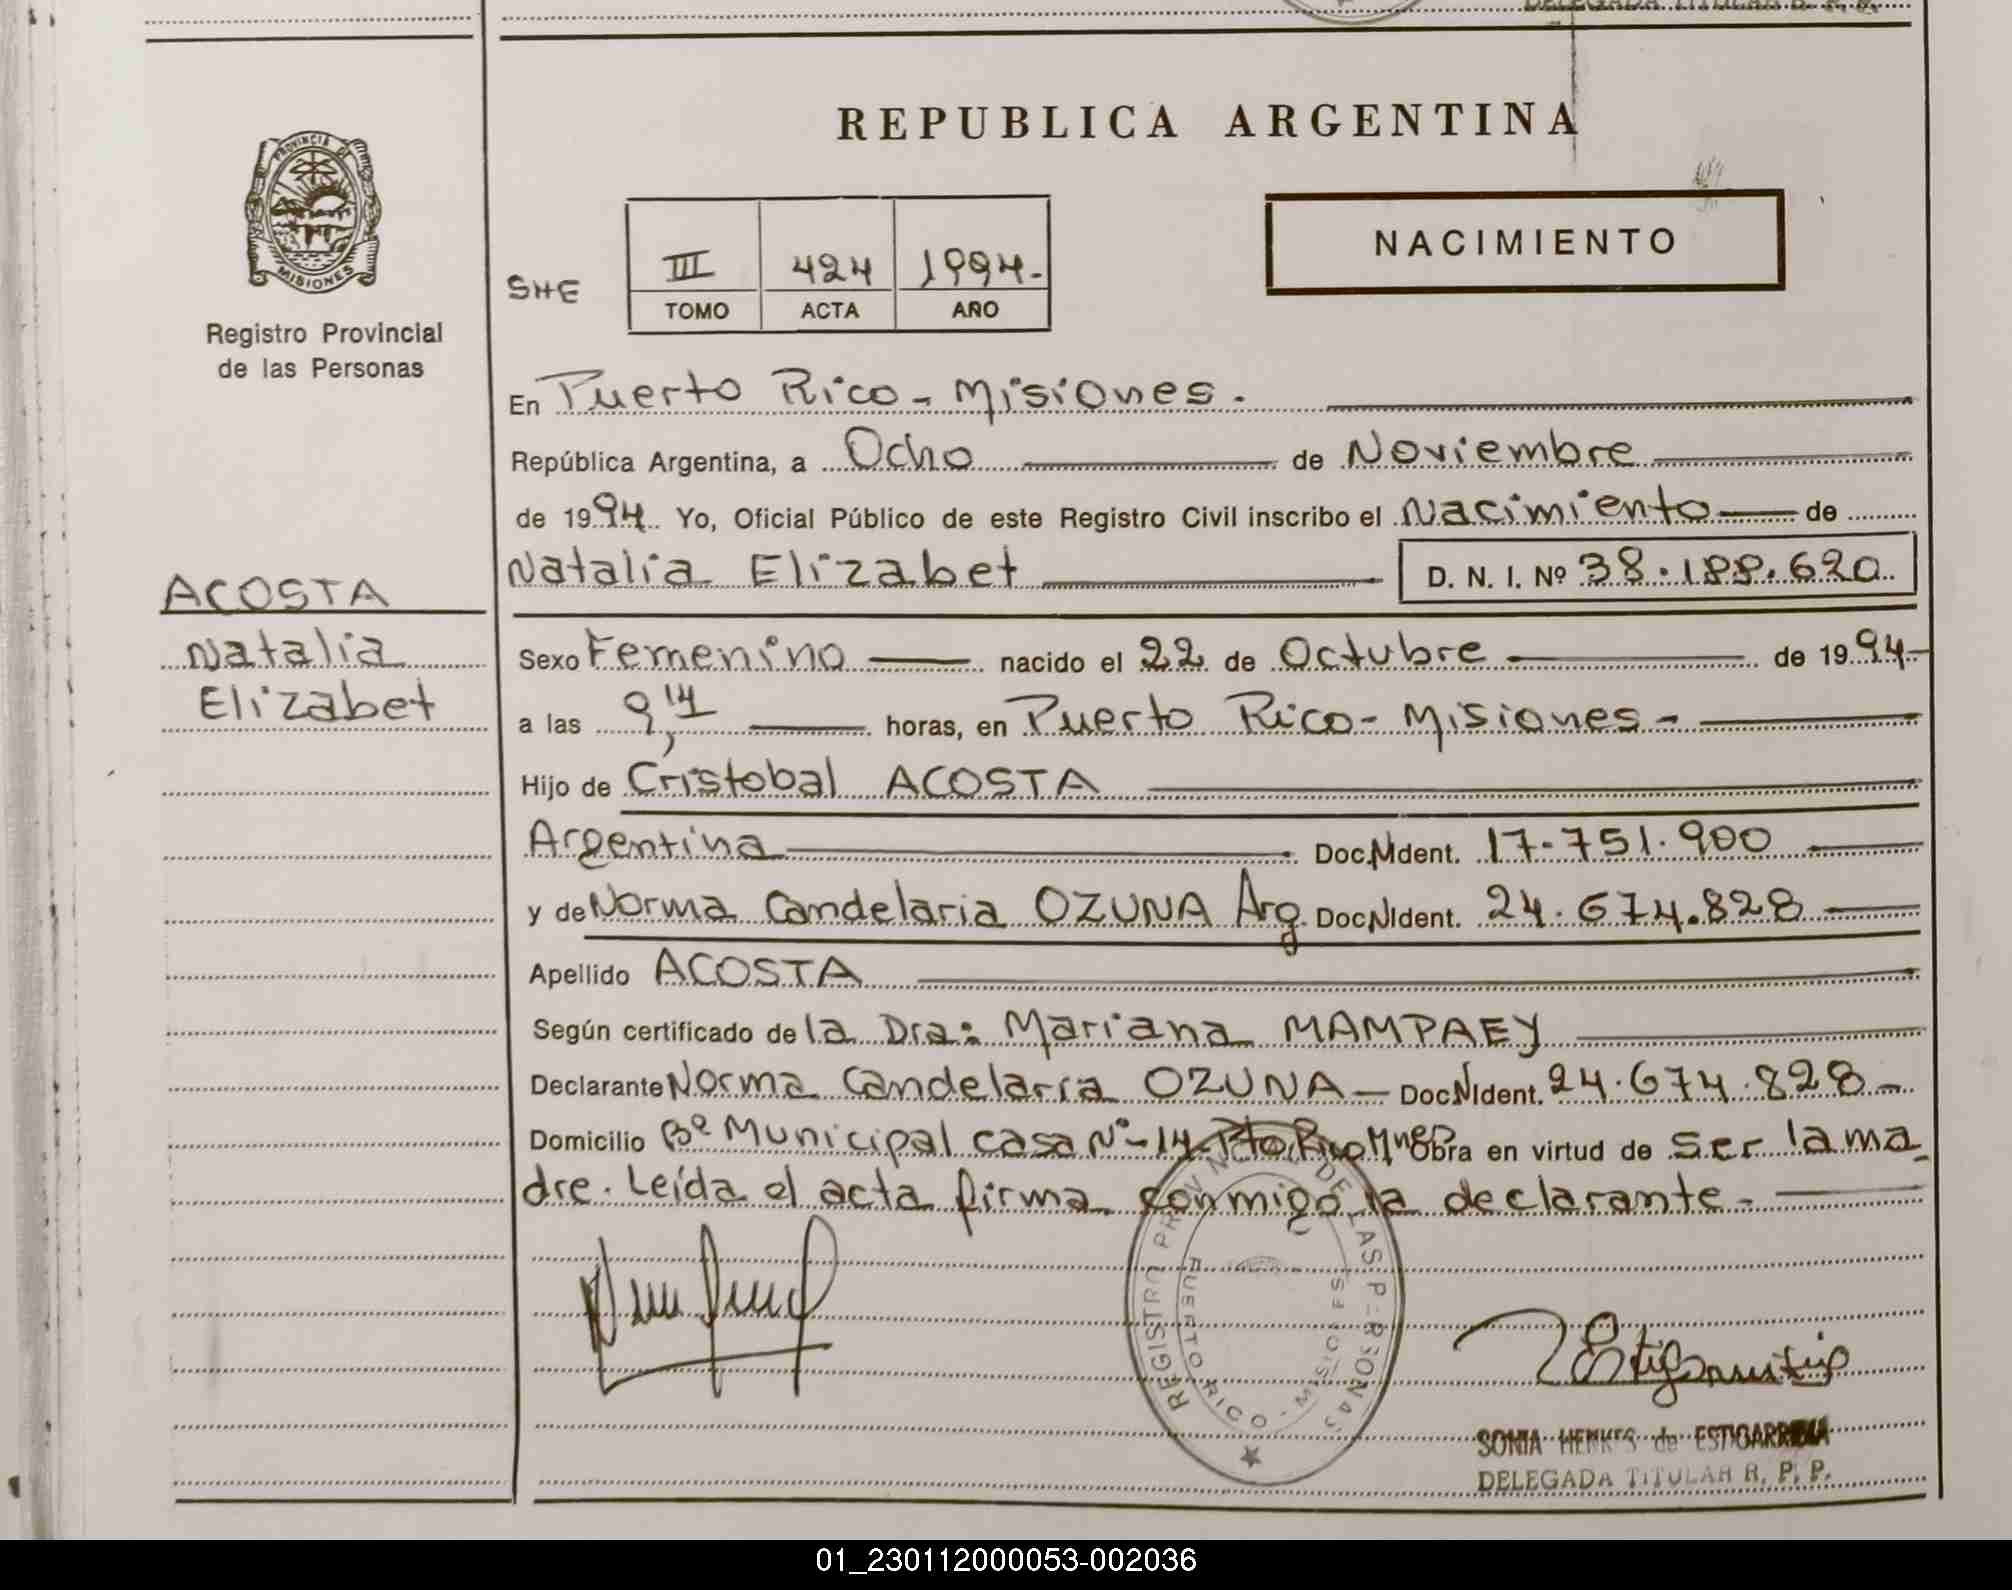 DELEGADA TITULAR R. P. P.
REPUBLICA ARGENTINA
PROVINCIA DE
MISIONES
Registro Provincial
de las Personas
SHE
III 424 1994.-
TOMO ACTA AÑO
NACIMIENTO
En Puerto Rico - Misiones.
República Argentina, a Ocho de Noviembre
de 1994. Yo, Oficial Público de este Registro Civil inscribo el Nacimiento de
Natalia Elizabet D. N. I. Nº 38.188.620
ACOSTA
Natalia
Elizabet
Sexo Femenino nacido el 22 de Octubre de 1994-
a las 9,14 horas, en Puerto Rico - Misiones -
Hijo de Cristobal ACOSTA
Argentina Doc. N Ident. 17.751.900
y de Norma Candelaria OZUNA Arg. Doc. N Ident. 24.674.828
Apellido ACOSTA
Según certificado de la Dra: Mariana MAMPAEY
Declarante Norma Candelaria OZUNA - Doc. N Ident. 24.674.828 -
Domicilio Bº Municipal casa Nº 14 Pto Rico Mnes Obra en virtud de ser la ma
dre. Leída el acta firma conmigo la declarante -
REGISTRO PROVINCIAL DE LAS PERSONAS
PUERTO RICO - MISIONES
SONIA HENKES de ESTIGARRIBIA
DELEGADA TITULAR R. P. P.
01_230112000053-002036